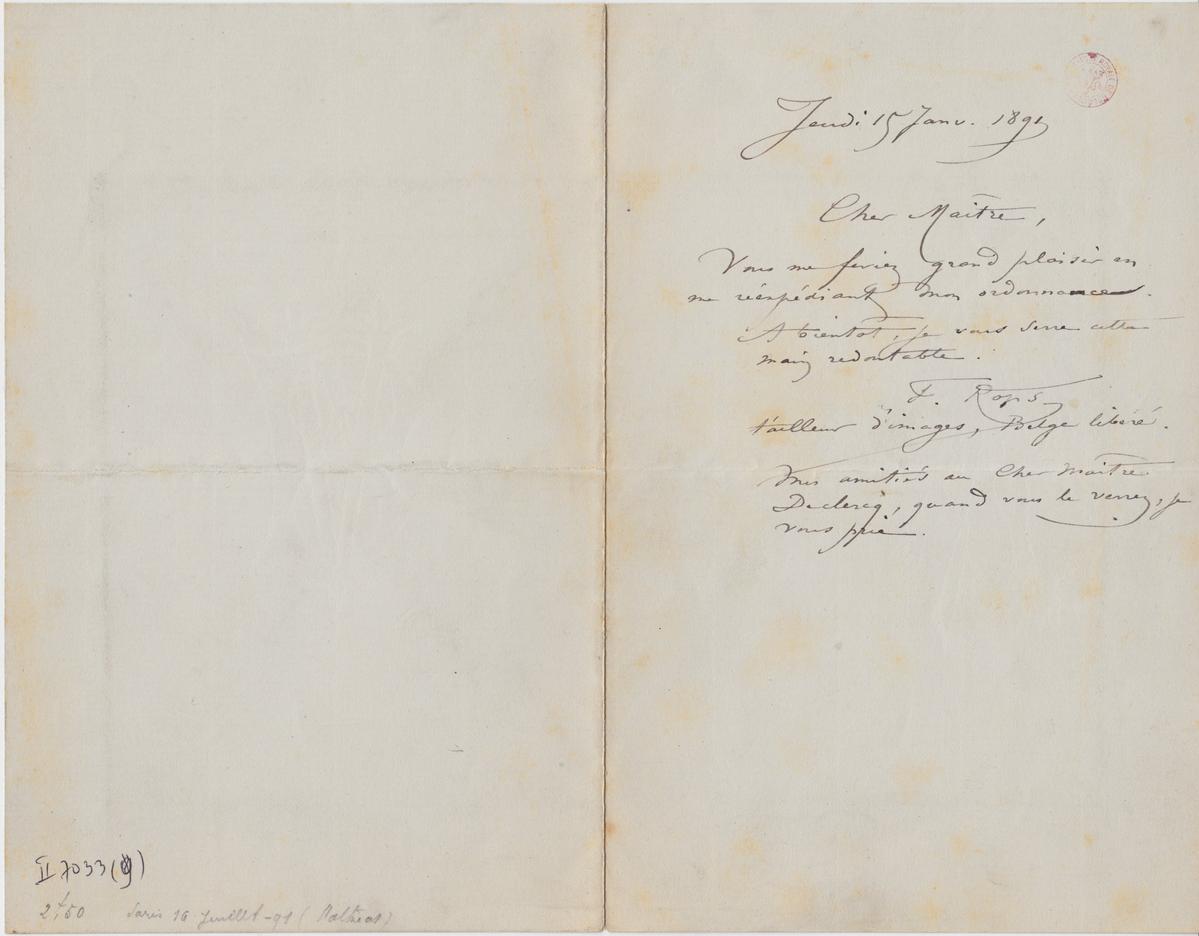 Jeudi 15 Janv. 1891
Cher Maître,
Vous me feriez grand plaisir en
me réexpédiant mon ordonnance.
A bientôt, je vous serre cette
main redoutable.
F. Rops
tailleur d'images, Belge libéré.
Mes amitiés au Cher Maître
Declercq, quand vous le verrez, je
vous prie.
II 7033 (9)
2f,50 Paris 16 Juillet -91